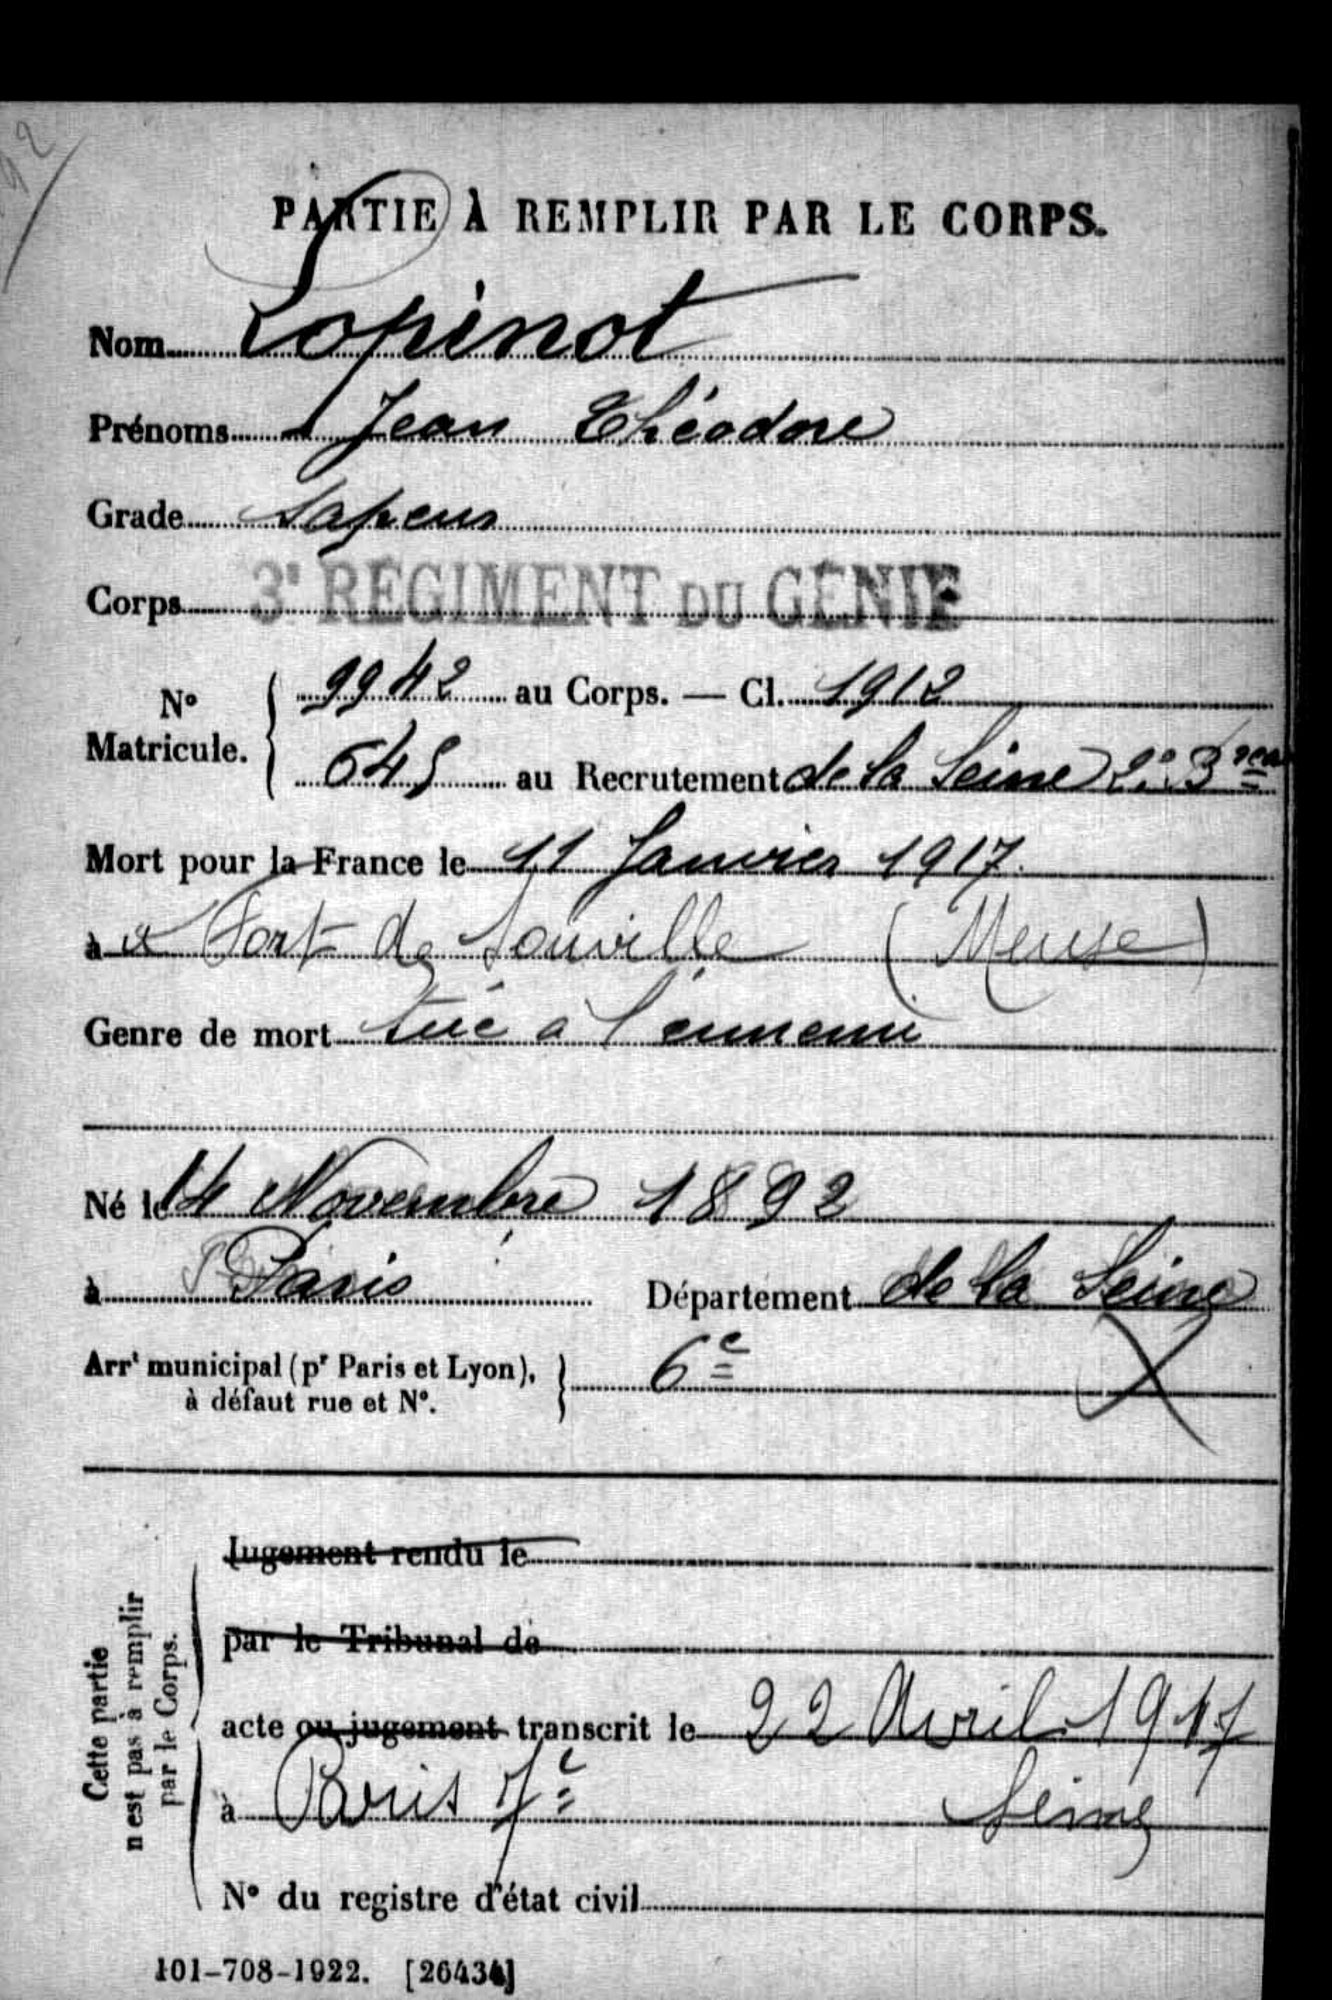 92
PARTIE À REMPLIR PAR LE CORPS.
Nom Lopinot
Prénoms Jean Théodore
Grade Sapeur
Corps 3e RÉGIMENT DU GÉNIE
No Matricule. 9942 au Corps. — Cl. 1912
645 au Recrutement de la Seine 2e 3
Mort pour la France le 11 Janvier 1917
à Fort de Souville (Meuse)
Genre de mort tué à l'ennemi
Né le 14 Novembre 1892
à Paris Département de la Seine
Arrt municipal (pr Paris et Lyon), 6e
à défaut rue et No.
Jugement rendu le
par le Tribunal de
acte ou jugement transcrit le 22 Avril 1917
à Paris 7e Seine
No du registre d'état civil
Cette partie
n'est pas à remplir
par le Corps.
101-708-1922. [26434]